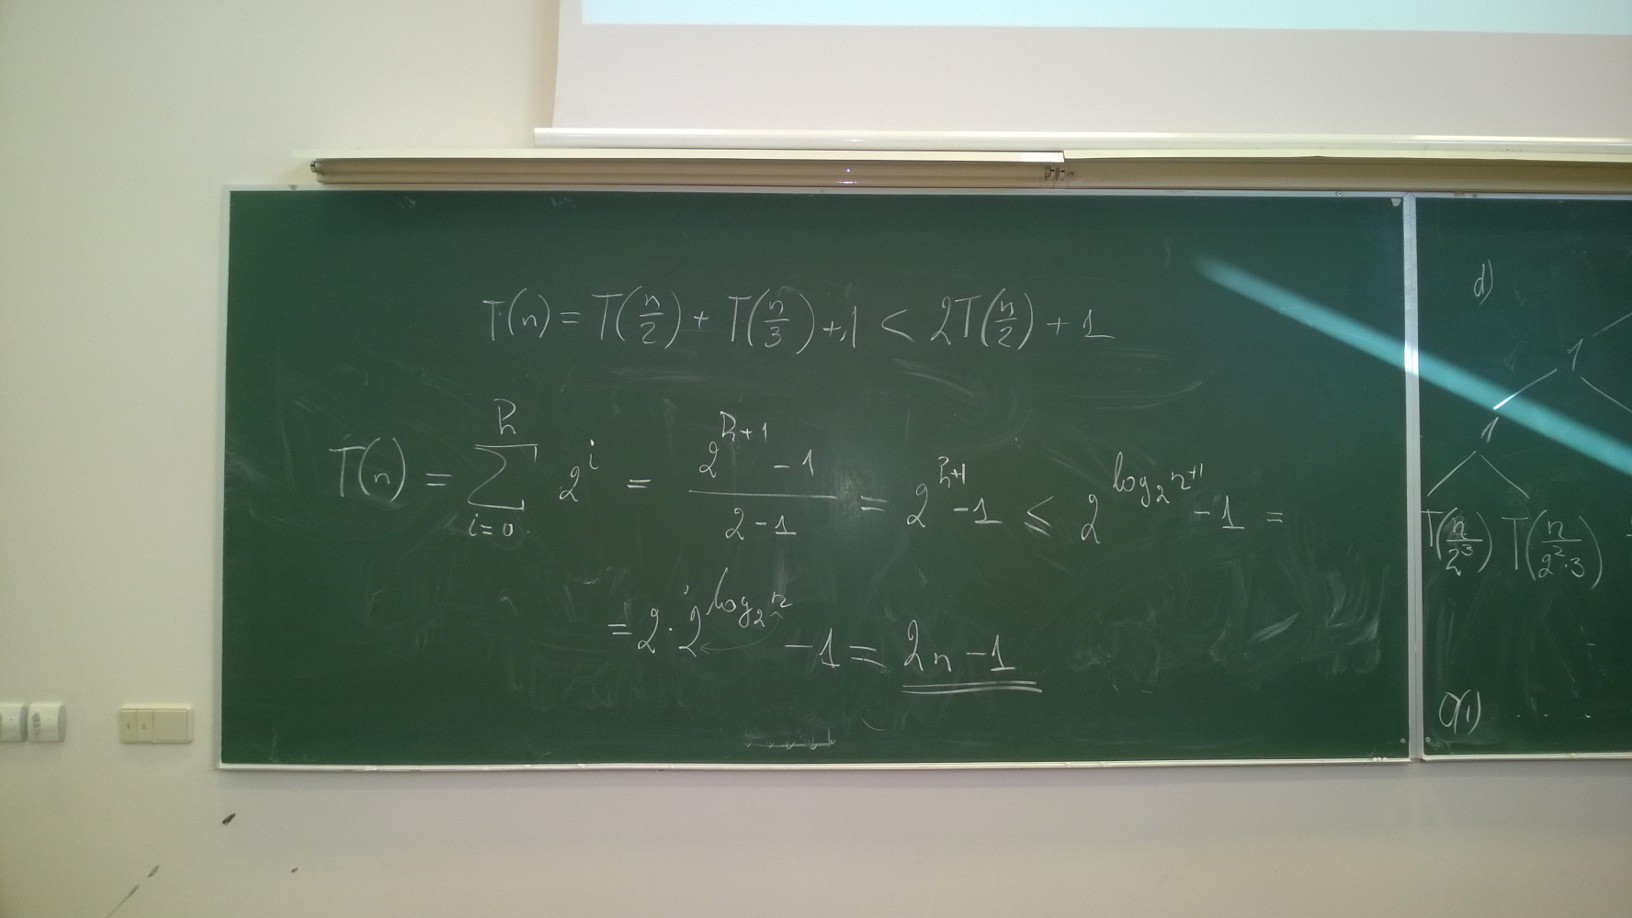 T(n) = T(n/2) + T(n/3) + 1 < 2T(n/2) + 1
T(n) = ∑_{i=0}^{h} 2^i = (2^{h+1} - 1)/(2 - 1) = 2^{h+1} - 1 ≤ 2^{log_2 n+1} - 1 =
= 2 · 2^{log_2 n} - 1 = 2n - 1
d)
1
1
T(n/2^3) T(n/(2^2·3))
O(1) . . . .